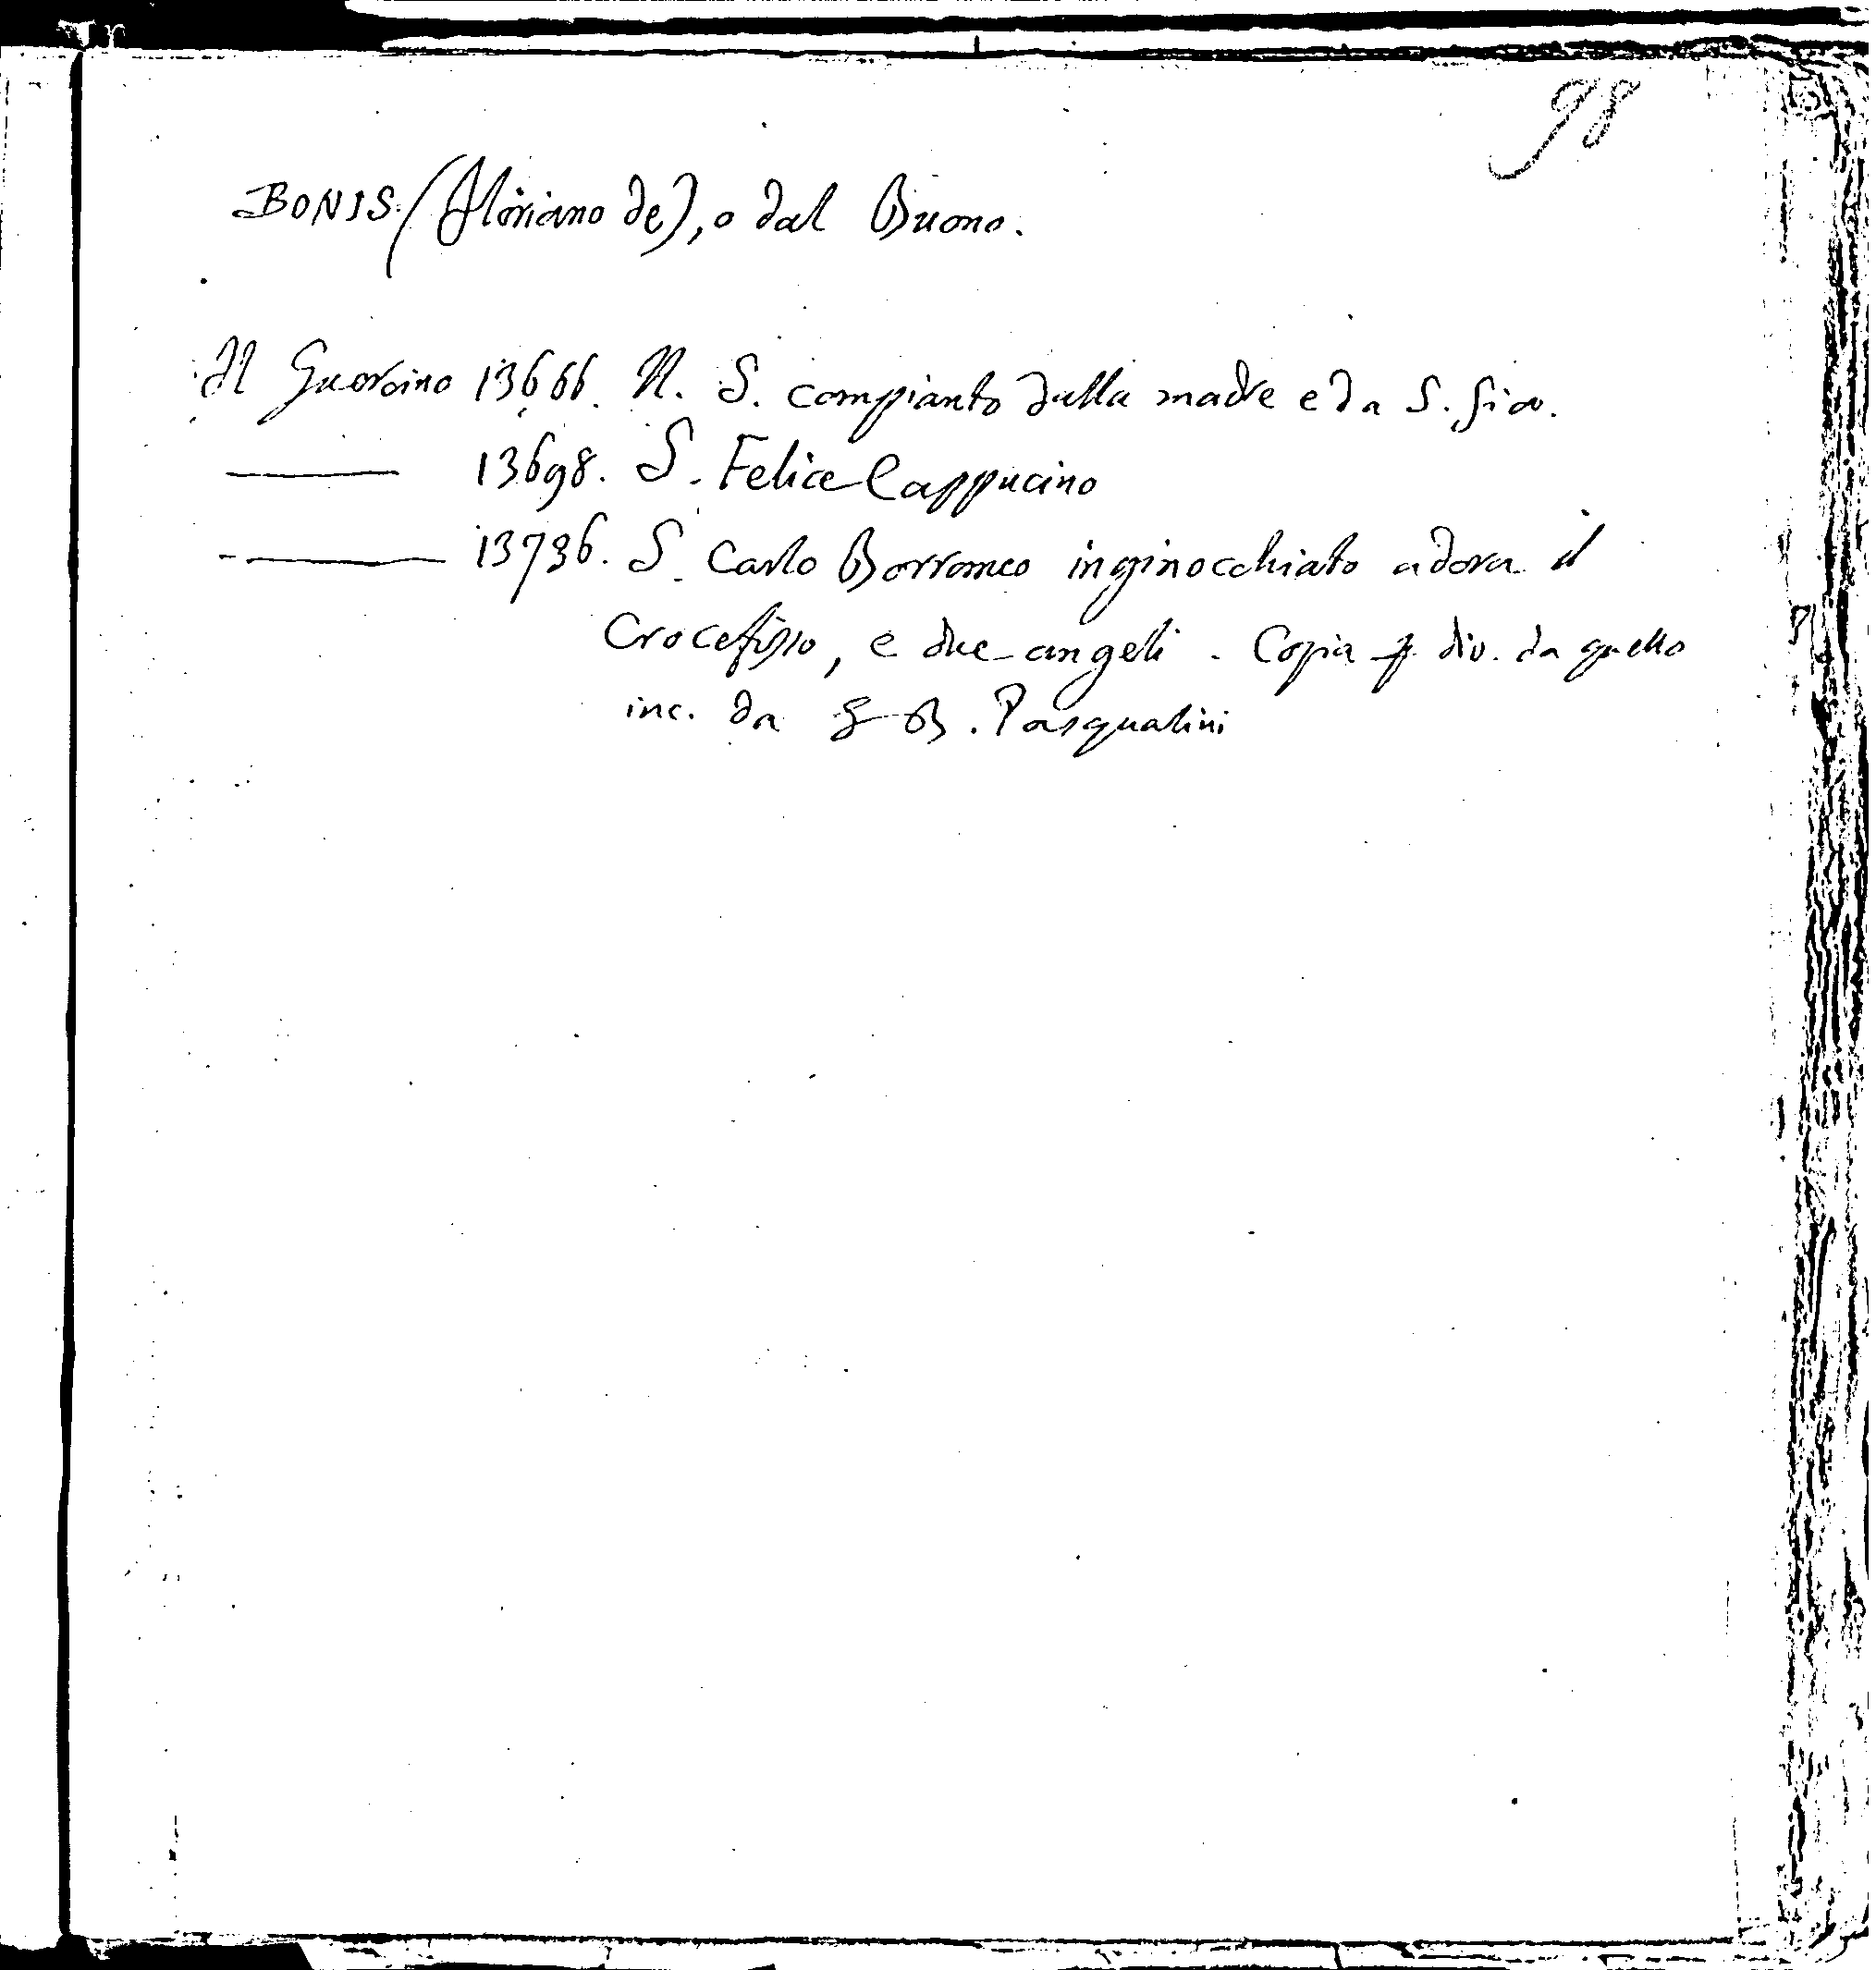 98
BONIS (Floriano de), o dal Buono.
Il Guercino 13666. N. S. compianto dalla madre e da S. Gio.
——— 13698. S. Felice Cappucino
——— 13736. S. Carlo Borromeo inginocchiato adora il
Crocefisso, e due angeli. Copia div. da quello
inc. da G B. Pasqualini